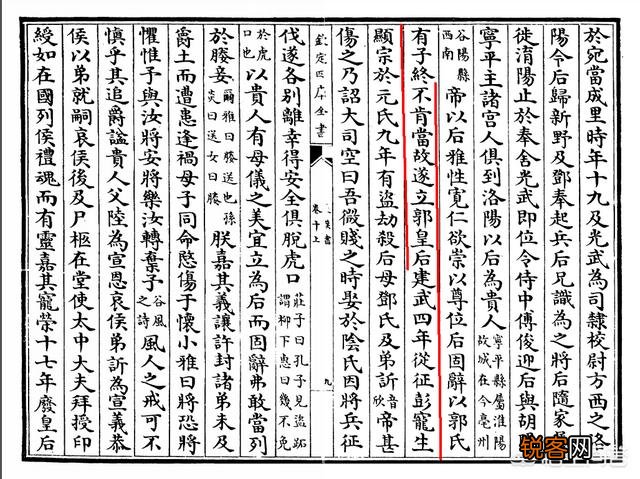 於宛當成里時年十九及光武為司隸校尉方西之洛
陽令后歸新野及鄧奉起兵后兄識為之將后隨家
徙淯陽止於奉舍光武即位令侍中傅俊迎后與胡
寧平主諸宫人俱到洛陽以后為貴人寧平縣屬淮陽故城在今亳州
谷陽縣西南帝以后雅性寛仁欲崇以尊位后固辭以郭氏
有子終不肯當故遂立郭皇后建武四年從征彭寵生
顯宗於元氏九年有盗劫殺后母鄧氏及弟訢音欣帝甚
傷之乃詔大司空曰吾微賤之時娶於陰氏因將兵征
欽定四庫全書
漢書
卷十上
九
伐遂各别離幸得安全俱脱虎口莊子曰孔子見盗跖謂柳下惠曰幾不免
於虎口也以貴人有母儀之美宜立為后而固辭弗敢當列
於媵妾爾雅曰媵送也孫炎曰送女曰媵朕嘉其義讓許封諸弟未及
爵土而遭患逢禍母子同命愍傷于懷小雅曰將恐將
懼惟予與汝將安將樂汝轉棄予谷風之詩風人之戒可不
慎乎其追爵諡貴人父陸為宣恩哀侯弟訢為宣義恭
侯以弟就嗣哀侯後及尸柩在堂使太中大夫拜授印
綬如在國列侯禮魂而有靈嘉其寵榮十七年廢皇后
锐客网